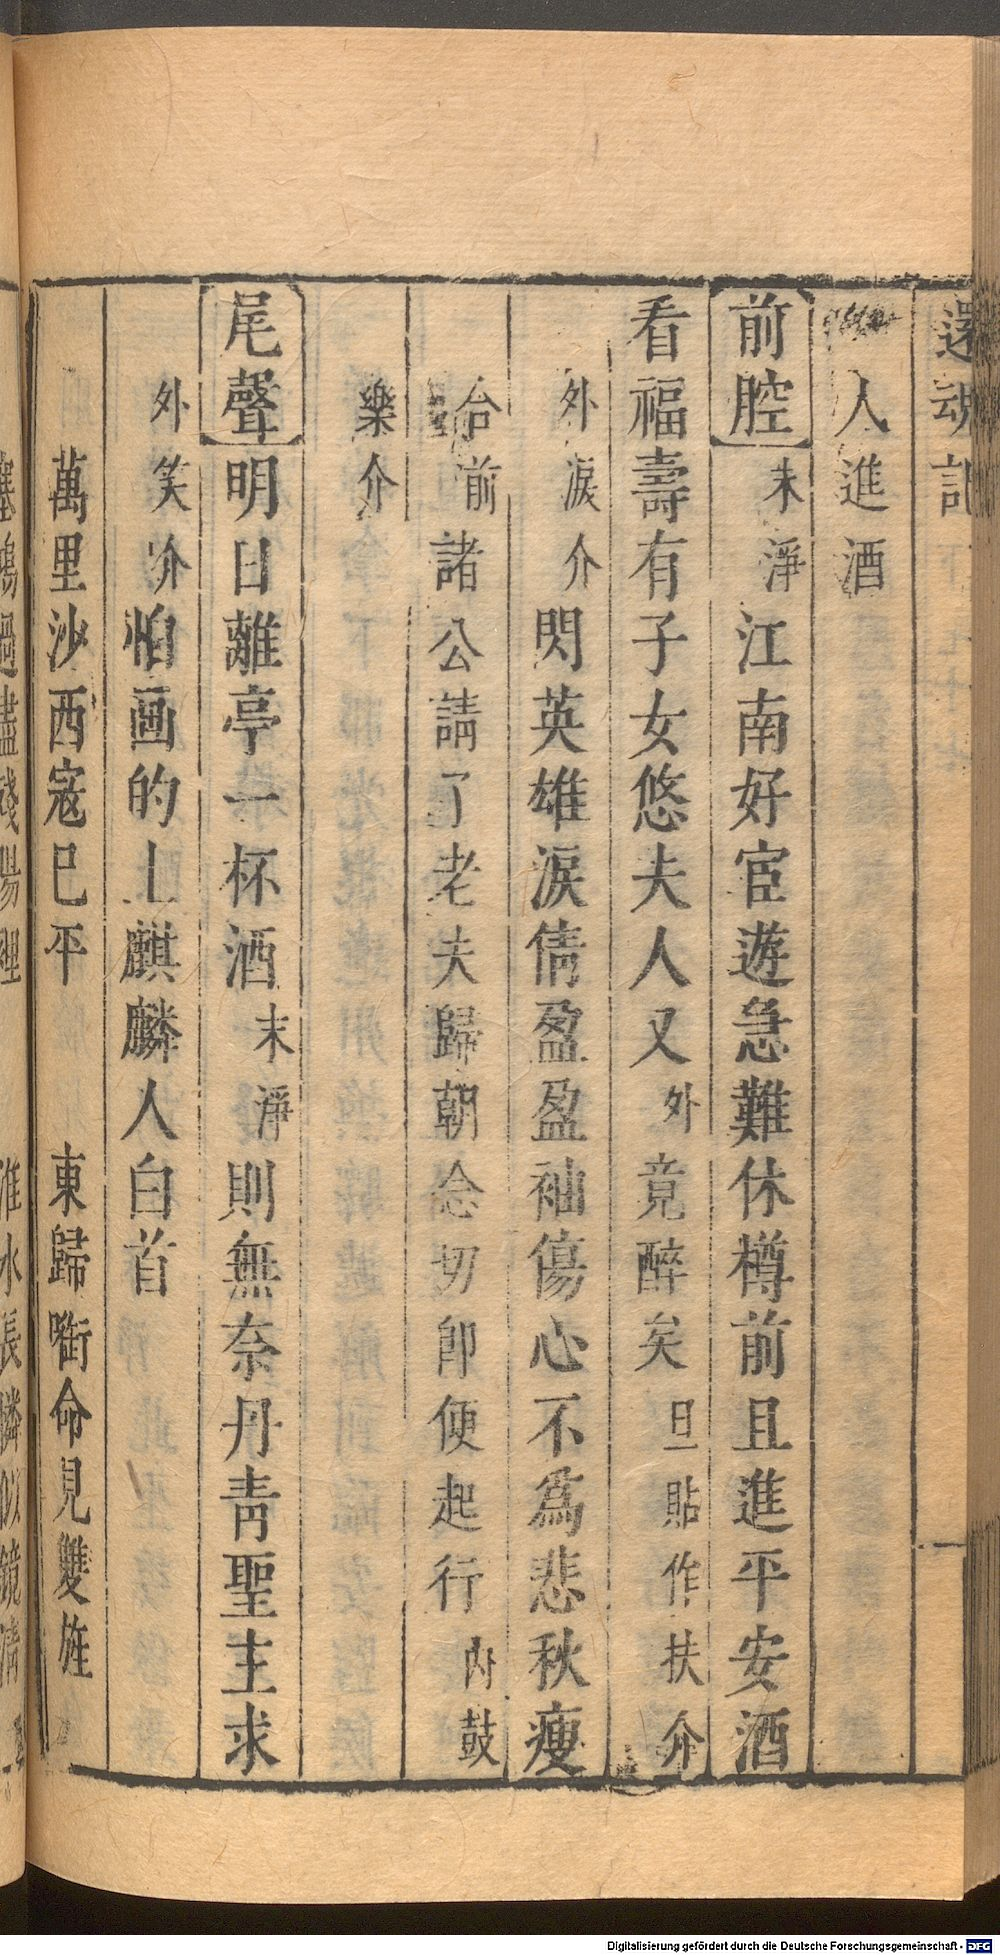 還魂記
人進酒
前腔末淨江南好宦遊急難休樽前且進平安酒
看福壽有子女悠夫人又外竟醉矣旦貼作扶介
外淚介閃英雄淚倩盈盈袖傷心不爲悲秋瘦
台前諸公請了老夫歸朝念切卽便起行內鼓
樂介
尾聲明日離亭一杯酒末淨則無奈丹靑聖主求
外笑介怕画的上麒麟人白首
萬里沙西寇已平　東歸啣命見雙旌
塞鴻過盡殘陽裡　淮水長憐似鏡清
Digitalisierung gefördert durch die Deutsche Forschungsgemeinschaft - DFG